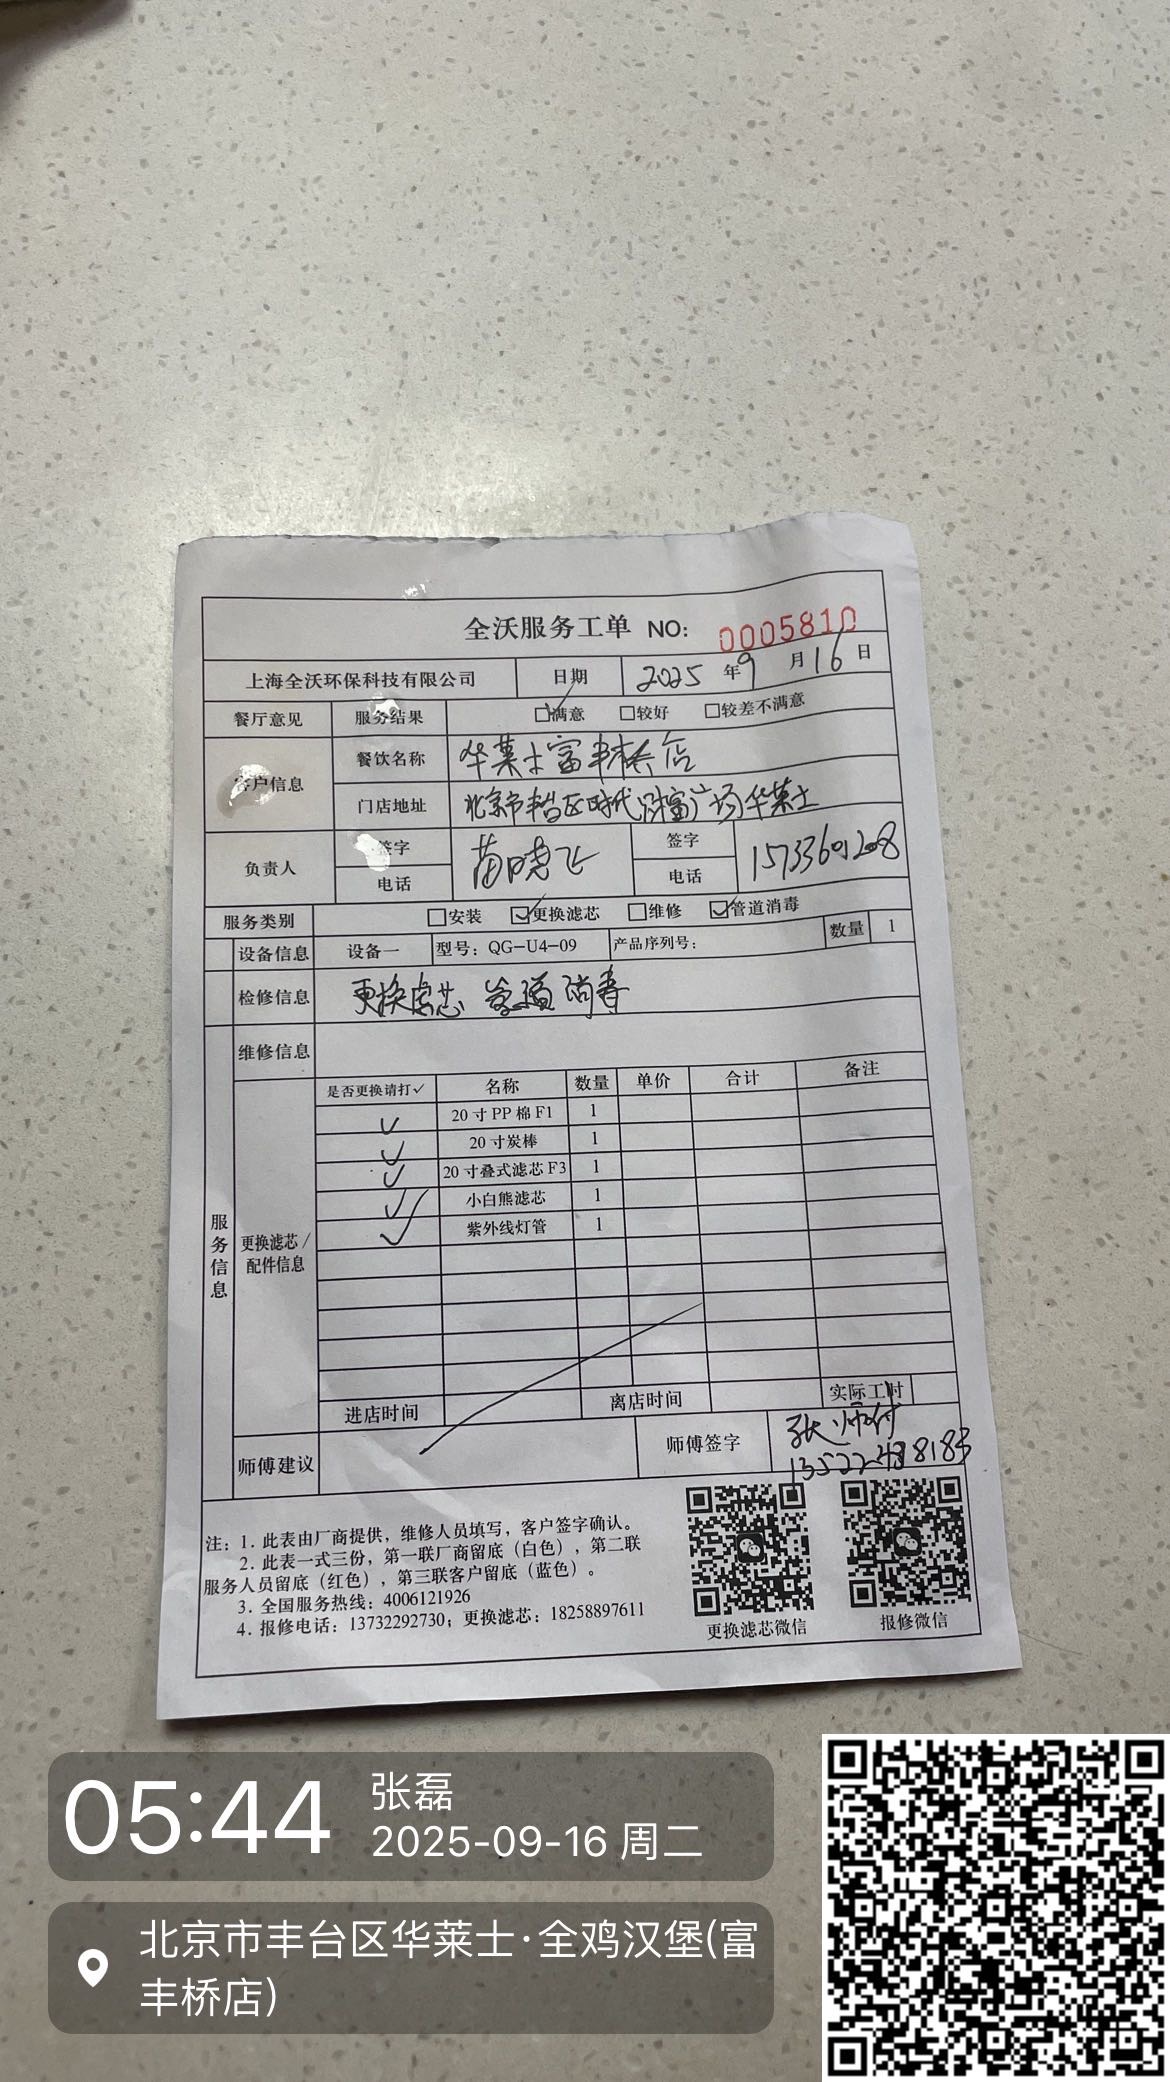 全沃服务工单 NO: 0005810
上海全沃环保科技有限公司 日期 2025 年 9 月 16 日
餐厅意见 服务结果 ☑满意 □较好 □较差不满意
客户信息 餐饮名称 华莱士富丰桥店
门店地址 北京市丰台区时代财富广场华莱士
负责人 签字 苗晓飞 签字
电话 电话 15733601208
服务类别 □安装 ☑更换滤芯 □维修 ☑管道消毒
设备信息 设备一 型号：QG-U4-09 产品序列号： 数量 1
检修信息 更换滤芯 管道消毒
维修信息
服务信息
更换滤芯/配件信息
是否更换请打✓ 名称 数量 单价 合计 备注
✓ 20寸PP棉F1 1
✓ 20寸炭棒 1
✓ 20寸叠式滤芯F3 1
✓ 小白熊滤芯 1
✓ 紫外线灯管 1
进店时间 离店时间 实际工时
师傅建议 师傅签字 张师付
注：1. 此表由厂商提供，维修人员填写，客户签字确认。
2. 此表一式三份，第一联厂商留底（白色），第二联
服务人员留底（红色），第三联客户留底（蓝色）。
3. 全国服务热线：4006121926
4. 报修电话：13732292730；更换滤芯：18258897611
更换滤芯微信 报修微信
05:44 张磊
2025-09-16 周二
北京市丰台区华莱士·全鸡汉堡(富
丰桥店)